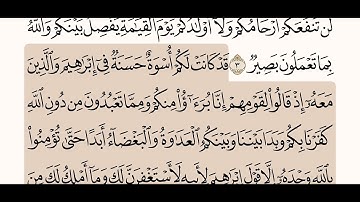 لَن تَنفَعَكُمْ أَرْحَامُكُمْ وَلَآ أَوْلَٰدُكُمْ يَوْمَ ٱلْقِيَٰمَةِ يَفْصِلُ بَيْنَكُمْ وَٱللَّهُ
بِمَا تَعْمَلُونَ بَصِيرٌ ٣ قَدْ كَانَتْ لَكُمْ أُسْوَةٌ حَسَنَةٌ فِىٓ إِبْرَٰهِيمَ وَٱلَّذِينَ
مَعَهُۥٓ إِذْ قَالُوا۟ لِقَوْمِهِمْ إِنَّا بُرَءَٰٓؤُا۟ مِنكُمْ وَمِمَّا تَعْبُدُونَ مِن دُونِ ٱللَّهِ
كَفَرْنَا بِكُمْ وَبَدَا بَيْنَنَا وَبَيْنَكُمُ ٱلْعَدَٰوَةُ وَٱلْبَغْضَآءُ أَبَدًا حَتَّىٰ تُؤْمِنُوا۟
بِٱللَّهِ وَحْدَهُۥٓ إِلَّا قَوْلَ إِبْرَٰهِيمَ لِأَبِيهِ لَأَسْتَغْفِرَنَّ لَكَ وَمَآ أَمْلِكُ لَكَ مِنَ